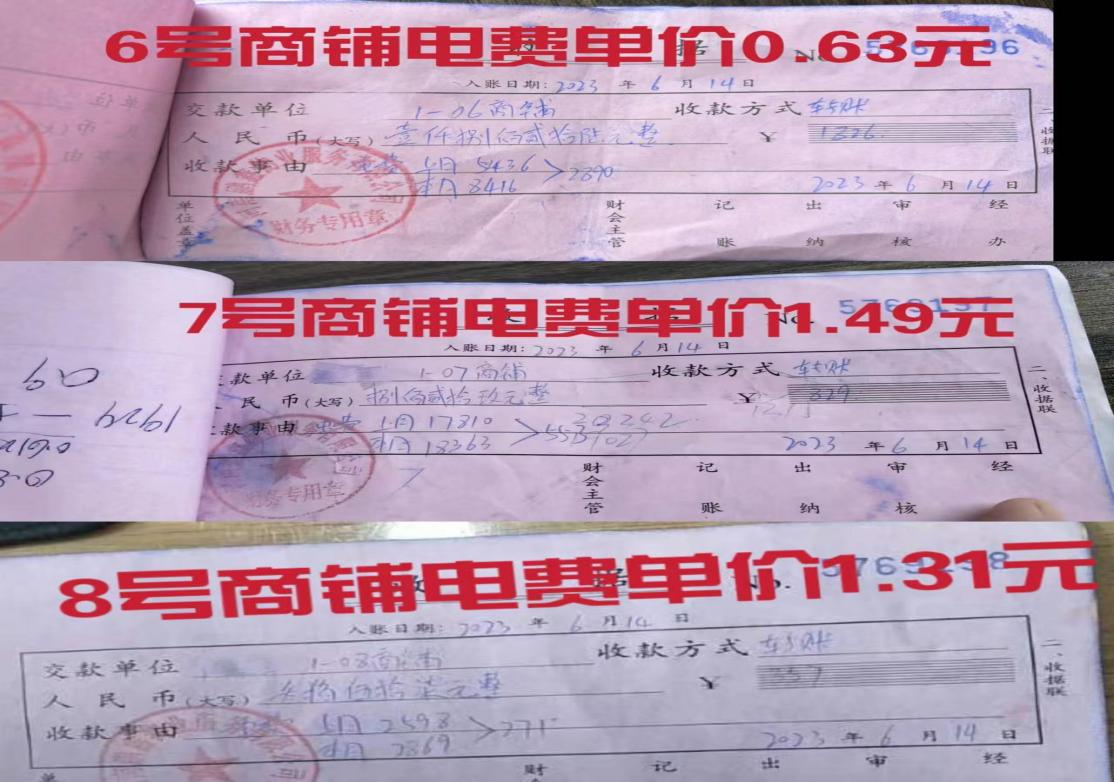 6号商铺电费单价0.63元
入账日期: 2023 年 6 月 14 日
交款单位 1-06商铺 收款方式 转账
人民币(大写) 壹仟捌佰贰拾陆元整 ¥ 1826.
收款事由 电费 5436 > 2890
本月 8416
2023 年 6 月 14 日
单位盖章 财会主管 记账 出纳 审核 经办
二、收据联
财务专用章
7号商铺电费单价1.49元
入账日期: 2023 年 6 月 14 日
款单位 1-07商铺 收款方式 转账
民币(大写) 捌佰贰拾玖元整 ¥ 829
款事由 电费 17810
本月 18363
2023 年 6 月 14 日
财会主管 记账 出纳 审核 经
二、收据联
财务专用章
8号商铺电费单价1.31元
入账日期: 2023 年 6 月 14 日
交款单位 1-08商铺 收款方式 转账
人民币(大写) ¥ 357
收款事由 2598 > 271
本月 2869
2023 年 6 月 14 日
财 记 出 审 经
二、收据联